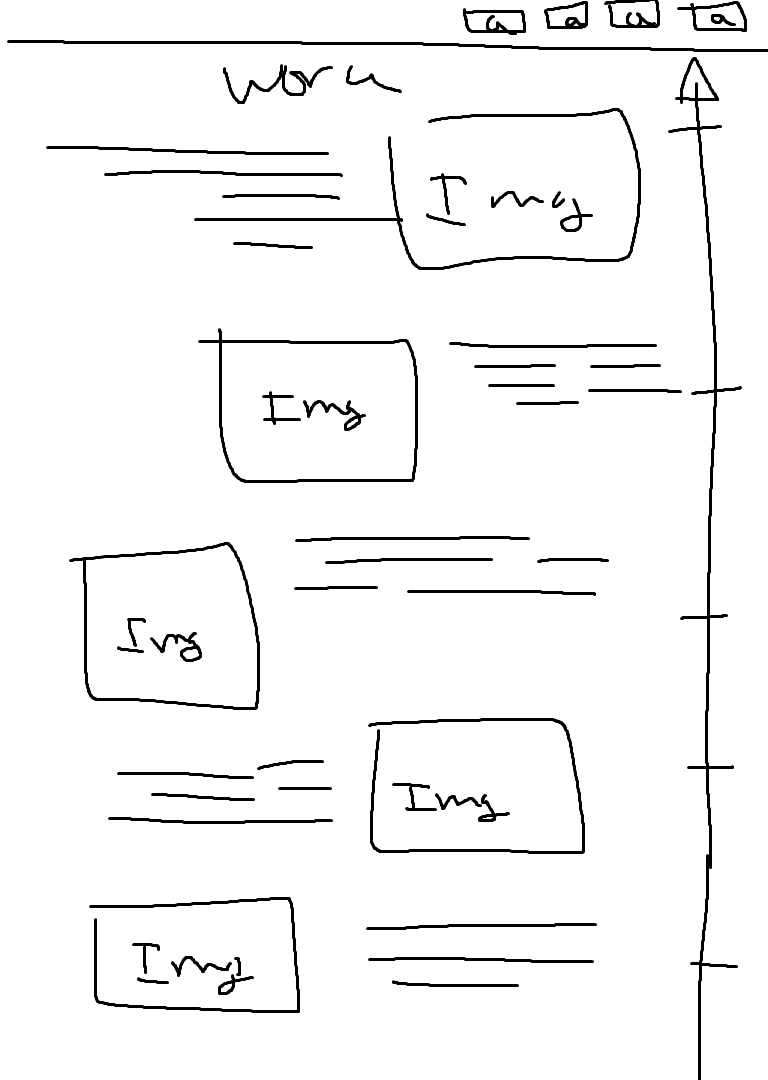 a a a a
work
Img
Img
Img
Img
Img